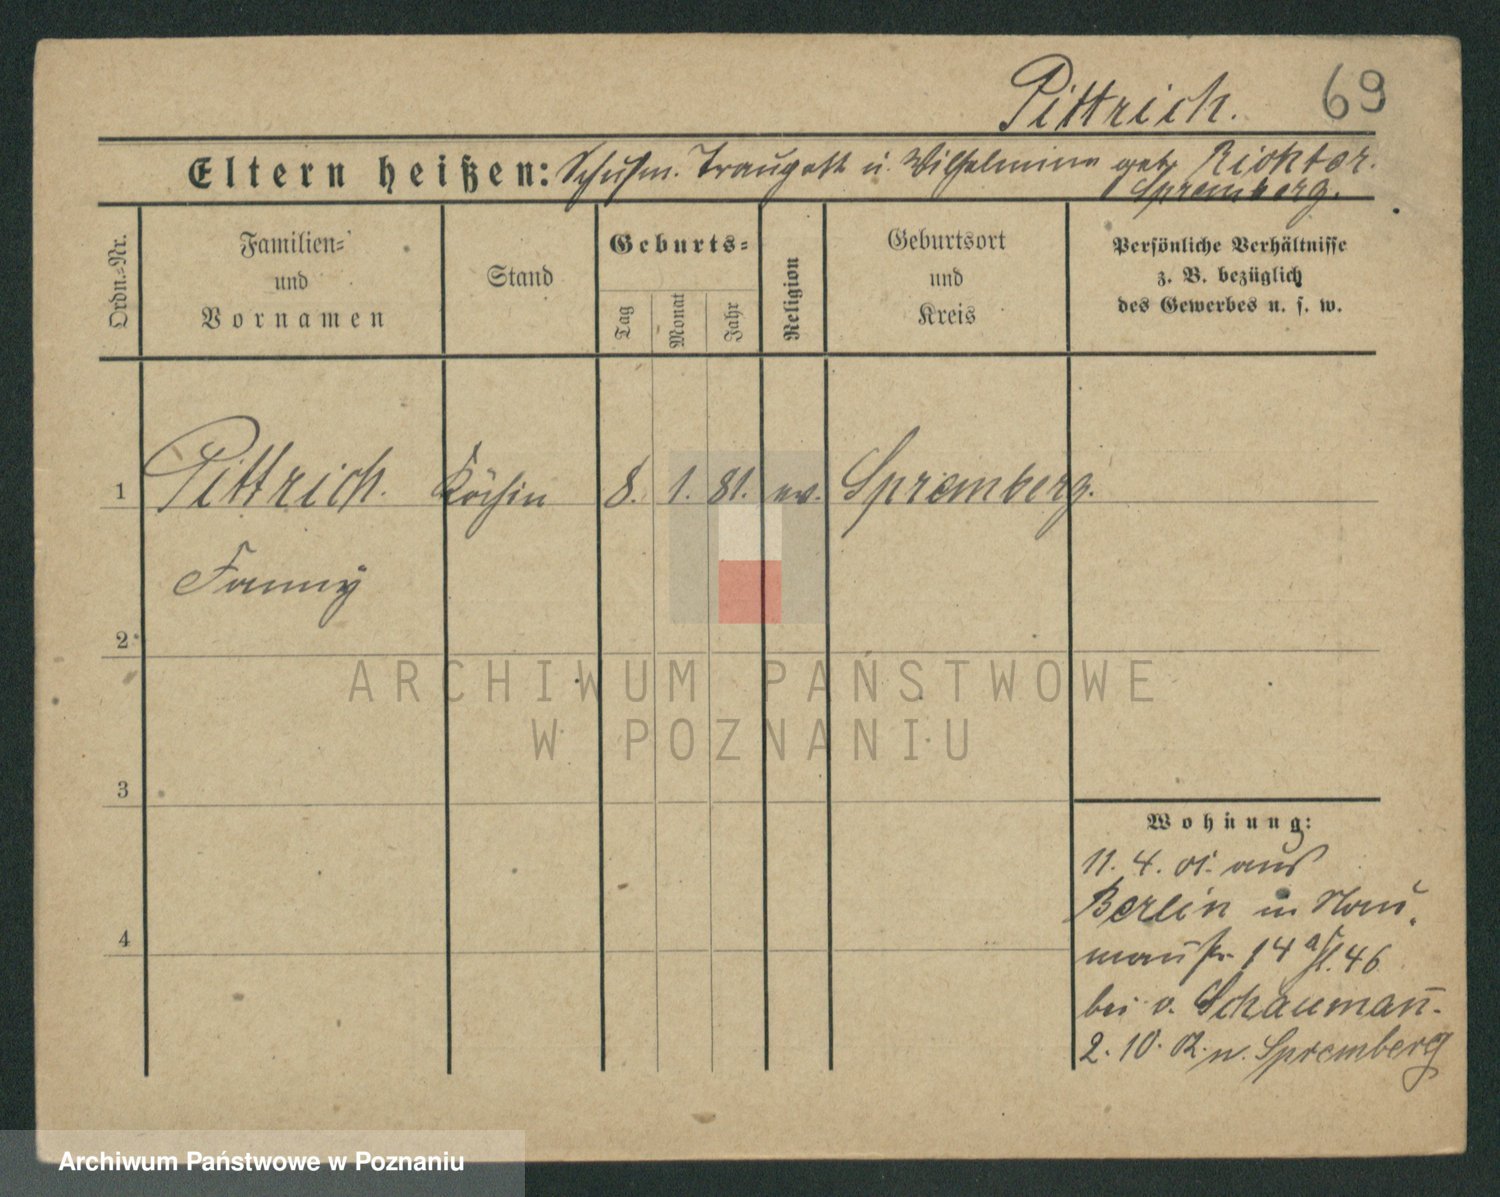 Pittrich. 69
Eltern heißen: Schuhm. Traugott u. Wilhelmine geb. Richter.
Spremberg.
Ordn.-Nr.
Familien-
und
Vornamen
Stand
Geburts-
Tag
Monat
Jahr
Religion
Geburtsort
und
Kreis
Persönliche Verhältnisse
z. B. bezüglich
des Gewerbes u. s. w.
1 Pittrich. Köchin 8. 1. 81. ev. Spremberg.
Fanny
2
ARCHIWUM PAŃSTWOWE
W POZNANIU
3
Wohnung:
11. 4. 01. aus
Berlin in Nau-
mannstr. 14 a/I. 46
4
bei v. Schauman̄.
2. 10. 02. n. Spremberg
Archiwum Państwowe w Poznaniu